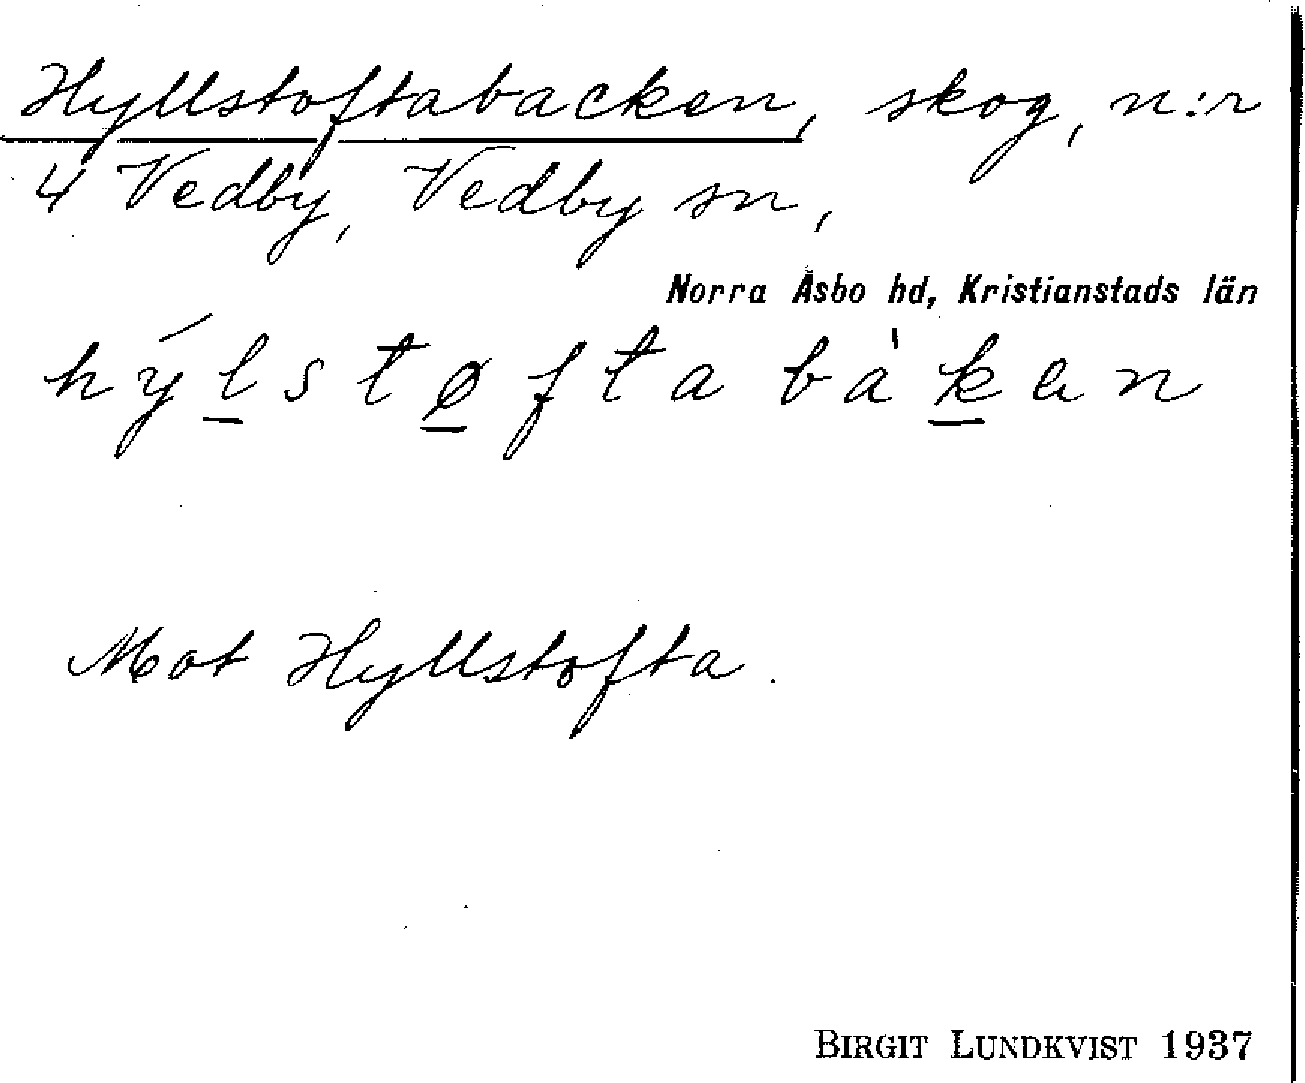 Hyllstoftabacken, skog, n:r
4 Vedby, Vedby sn,
Norra Åsbo hd, Kristianstads län
hýl̲stø̲ftabàk̲en
Mot Hyllstofta.
BIRGIT LUNDKVIST 1937